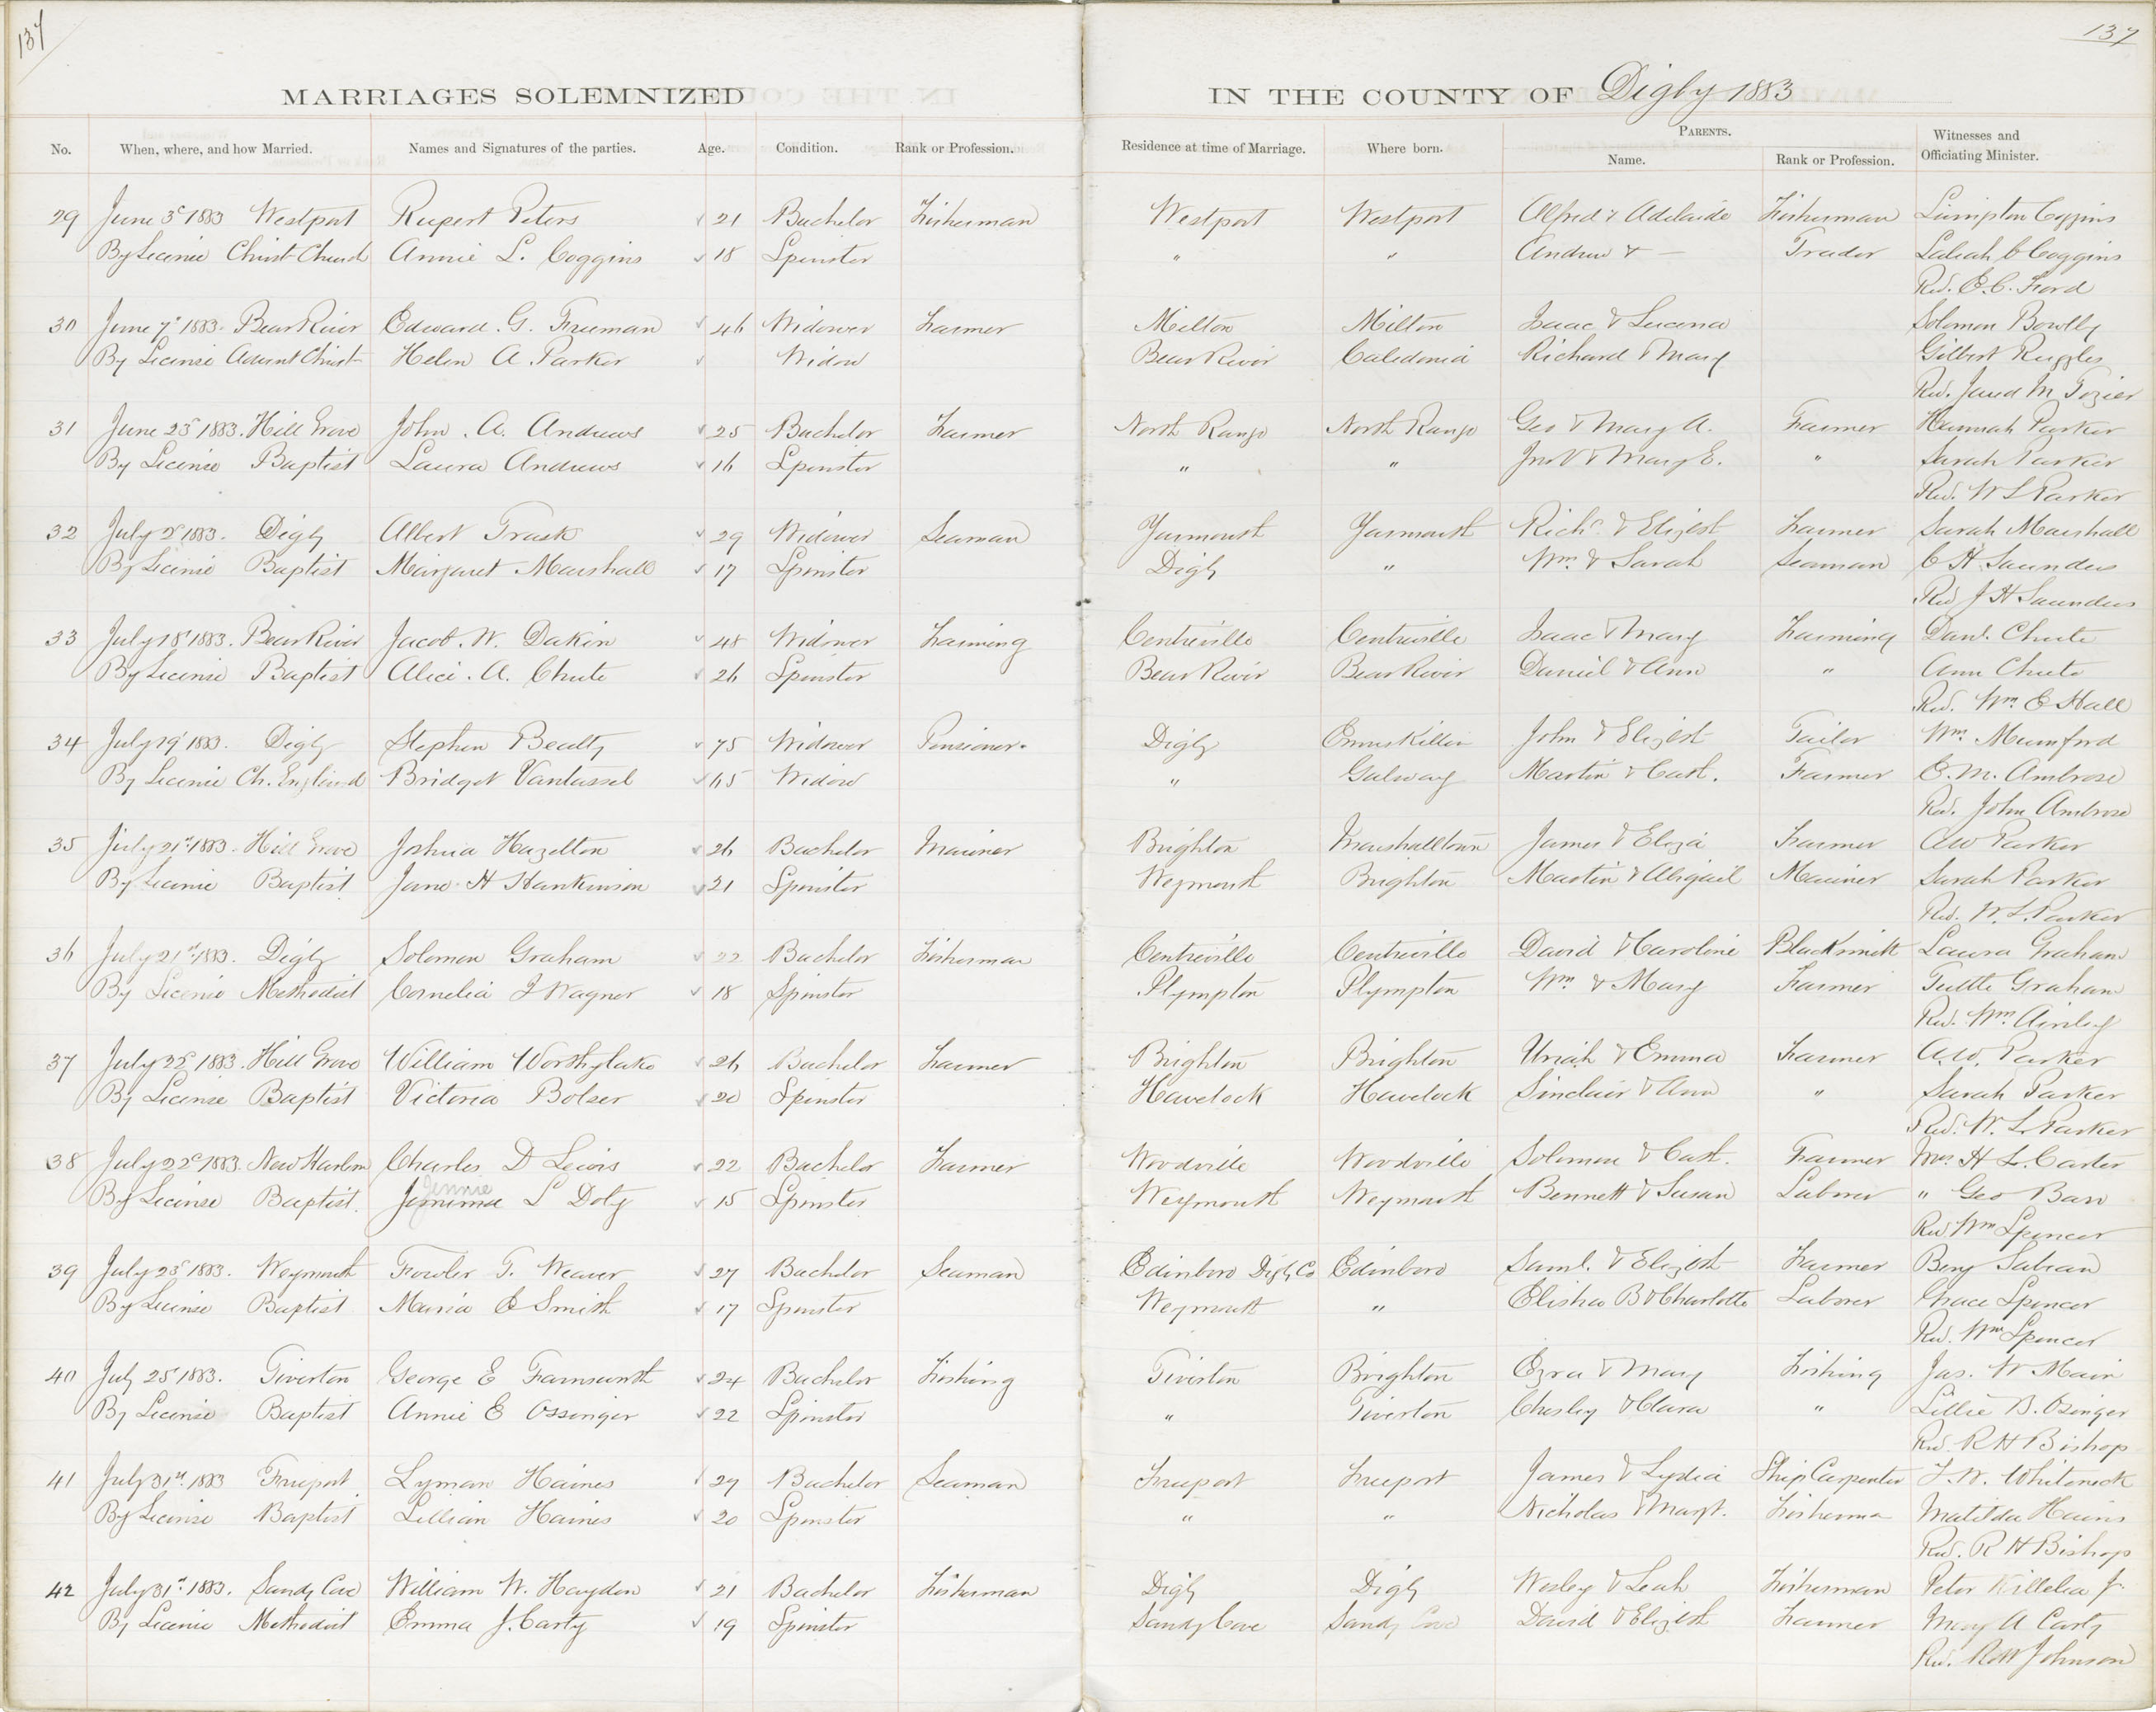 137
137
MARRIAGES SOLEMNIZED IN THE COUNTY OF Digby 1883
No. When, where, and how Married. Names and Signatures of the parties. Age. Condition. Rank or Profession. Residence at time of Marriage. Where born. PARENTS. Name. Rank or Profession. Witnesses and Officiating Minister.
29 June 3d 1883 Westport Rupert Peters 21 Bachelor Fisherman Westport Westport Alfred & Adelaide Fisherman Coggins
By License Christ Church Annie L. Coggins 18 Spinster " " Andrew & — Trader C Coggins
Rev. E. C. Ford
30 June 7th 1883. Bear River Edward. G. Freeman 46 Widower Farmer Milton Milton Isaac & Lucena Solomon Bowlby
By License Advent Christ Helen A. Parker Widow Bear River Caledonia Richard & Mary Gilbert Ruggles
Rev. Jared M Tozier
31 June 23d 1883. Hill Grove John. A. Andrews 25 Bachelor Farmer North Range North Range Geo & Mary A. Farmer Hannah Parker
By License Baptist Laura Andrews 16 Spinster " " & Mary E. " Sarah Parker
Rev. W L Parker
32 July 2d 1883. Digby Albert Trask 29 Widower Seaman Yarmouth Yarmouth Richd & Elizbth Farmer Sarah Marshall
By License Baptist Margaret Marshall 17 Spinster Digby " Wm. & Sarah Seaman C H Saunders
Rev J H Saunders
33 July 18 1883. Bear River Jacob. W. Dakin 48 Widower Farming Centreville Centreville Isaac & Mary Farming Danl. Chute
By License Baptist Alice. A. Chute 26 Spinster Bear River Bear River Daniel & Ann " Ann Chute
Rev. Wm. E Hall
34 July 19 1883. Digby Stephen Beatty 75 Widower Pensioner. Digby Enniskillin John & Elizbth Tailor Wm. Mumford
By License Ch. England Bridget Vantassel 65 Widow " Galway Martin & Cath. Farmer E. M. Ambrose
Rev. John Ambrose
35 July 21st 1883. Hill Grove Joshua Hazelton 26 Bachelor Mariner Brighton Marshalltown James & Eliza Farmer AW Parker
By License Baptist Jane H Hankinson 21 Spinster Weymouth Brighton Martin & Abigail Mariner Sarah Parker
Rev. W. L. Parker
36 July 21st 1883. Digby Solomon Graham 22 Bachelor Fisherman Centreville Centreville David & Caroline Blacksmith Laura Graham
By License Methodist Cornelia J Wagner 18 Spinster Plympton Plympton Wm & Mary Farmer Tuttle Graham
Rev. Wm Ainley
37 July 22d 1883. Hill Grove William Worthylake 26 Bachelor Farmer Brighton Brighton Uriah & Emma Farmer A.W. Parker
By License Baptist Victoria Bolser 20 Spinster Havelock Havelock Sinclair & Ann " Sarah Parker
Rev. W. L. Parker
38 July 22d 1883. New Harlem Charles D Lewis 22 Bachelor Farmer Woodville Woodville Solomon & Cath. Farmer Mrs H L. Carter
Jennie
By License Baptist. Jemima L Doty 15 Spinster Weymouth Weymouth Bennett & Susan Labrer " Geo Barr
Rev Wm Spencer
39 July 23d 1883. Weymouth Fowler T. Weaver 27 Bachelor Seaman Edinboro Digby Co Edinboro Saml. & Elizbth Farmer Benj Sabean
By License Baptist Maria E Smith 17 Spinster Weymouth " Elisha B & Charlotte Laborer Grace Spencer
Rev. Wm Spencer
40 July 25 1883. Tiverton George E Farnsworth 24 Bachelor Fishing Tiverton Brighton Ezra & Mary Fishing Jas. W Main
By License Baptist Annie E Ossinger 22 Spinster " Tiverton Chesley & Clara " Lillie B. Osinger
Rev. R H Bishop
41 July 31st 1883 Freeport Lyman Haines 27 Bachelor Seaman Freeport Freeport James & Lydia Ship Carpenter J. W. Whiteneck
By License Baptist Lillian Haines 20 Spinster " " Nicholas & Margt. Fisherma Matilda Hains
Rev. R H Bishop
42 July 31st 1883. Sandy Cove William W. Haydon 21 Bachelor Fisherman Digby Digby Wesley & Leah Fisherman Peter Killelia Jr.
By License Methodist Emma J. Carty 19 Spinster Sandy Cove Sandy Cove David & Elizbth Farmer Mary A Carty
Rev. Johnson